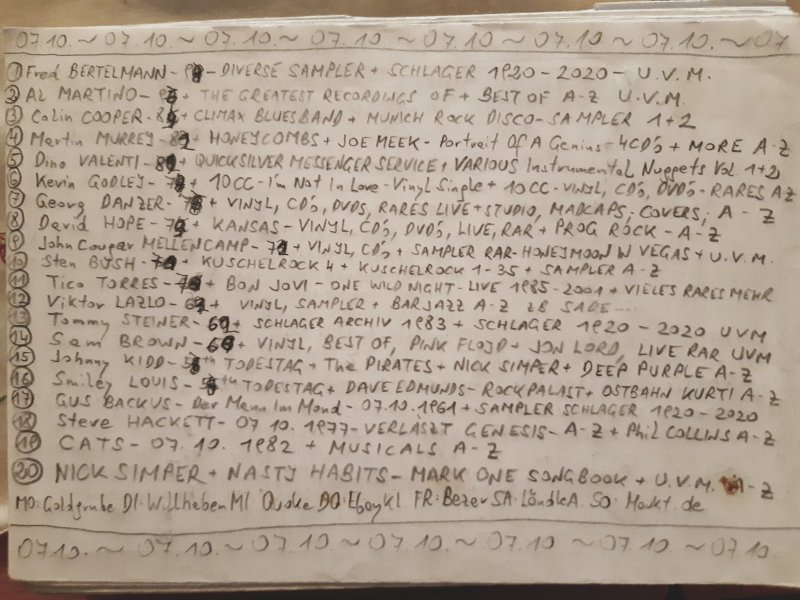 07.10. ~ 07.10. ~ 07.10. ~ 07.10. ~ 07.10. ~ 07.10. ~ 07.10. ~ 07
1 Fred BERTELMANN - - DIVERSE SAMPLER + SCHLAGER 1920 - 2020 - U.V.M.
2 AL MARTINO - + THE GREATEST RECORDINGS OF + BEST OF A-Z U.V.M.
3 Colin COOPER - + CLIMAX BLUESBAND + MUNICH ROCK DISCO - SAMPLER 1+2
4 Martin MURREY - + HONEYCOMBS + JOE MEEK - Portrait Of A Genius - 4CD's + MORE A-Z
5 Dino VALENTI - + QUICKSILVER MESSENGER SERVICE + VARIOUS Instrumental Nuggets Vol. 1+2
6 Kevin GODLEY - + 10CC - I'm Not In Love - Vinyl Single + 10CC - VINYL, CD's, DVD's - RARES AZ
7 Georg DANZER - + VINYL, CD's, DVDS, RARES LIVE + STUDIO, MADCAPS, COVERS, A - Z
8 David HOPE - + KANSAS - VINYL, CD's, DVD's, LIVE, RAR + PROG ROCK - A-Z
9 John Cougar MELLENCAMP - + VINYL, CD's + SAMPLER RAR - HONEYMOON W VEGAS + U.V.M.
10 Sten BUSH - + KUSCHELROCK 4 + KUSCHELROCK 1-35 + SAMPLER A-Z
11 Tico TORRES - + BON JOVI - ONE WILD NIGHT - LIVE 1985 - 2001 + VIELES RARES MEHR
12 Viktor LAZLO - + VINYL, SAMPLER + BARJAZZ A-Z zB SADE....
13 Tommy STEINER - + SCHLAGER ARCHIV 1983 + SCHLAGER 1920 - 2020 UVM
14 Sam BROWN - + VINYL, BEST OF, PINK FLOJD + JON LORD, LIVE RAR UVM
15 Johnny KIDD - th TODESTAG + The PIRATES + NICK SIMPER + DEEP PURPLE A-Z
16 Smiley LOUIS - th TODESTAG + DAVE EDMUNDS - ROCKPALAST + OSTBAHN KURTI A-Z
17 GUS BACKUS - Der Mann Im Mond - 07.10.1961 + SAMPLER SCHLAGER 1920 - 2020
18 Steve HACKETT - 07 10. 1977 - VERLÄSZT GENESIS - A-Z + Phil COLLINS A-Z
19 CATS - 07. 10. 1982 + MUSICALS A-Z
20 NICK SIMPER + NASTY HABITS - MARK ONE SONGBOOK + U.V.M. A-Z
MO: Goldgrube DI: Willhaben MI: Quoka DO: EbayKl. FR: Bazar SA: LändleA. SO: Markt.de
07.10. ~ 07.10. ~ 07.10. ~ 07.10. ~ 07.10. ~ 07.10. ~ 07.10.